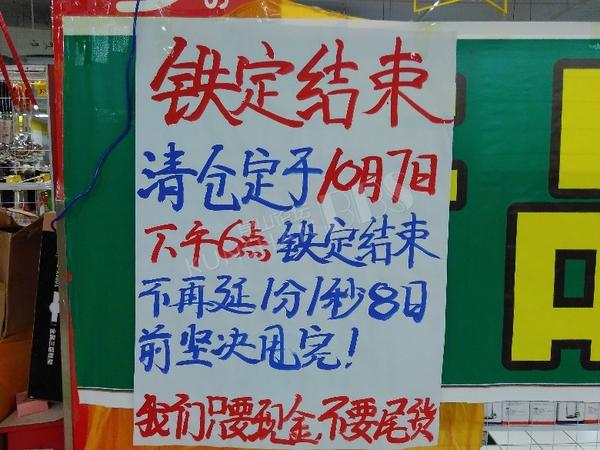 铁定结束
清仓定于10月7日
下午6点铁定结束
不再延1分1秒8日
前坚决甩完!
我们只要现金,不要尾货